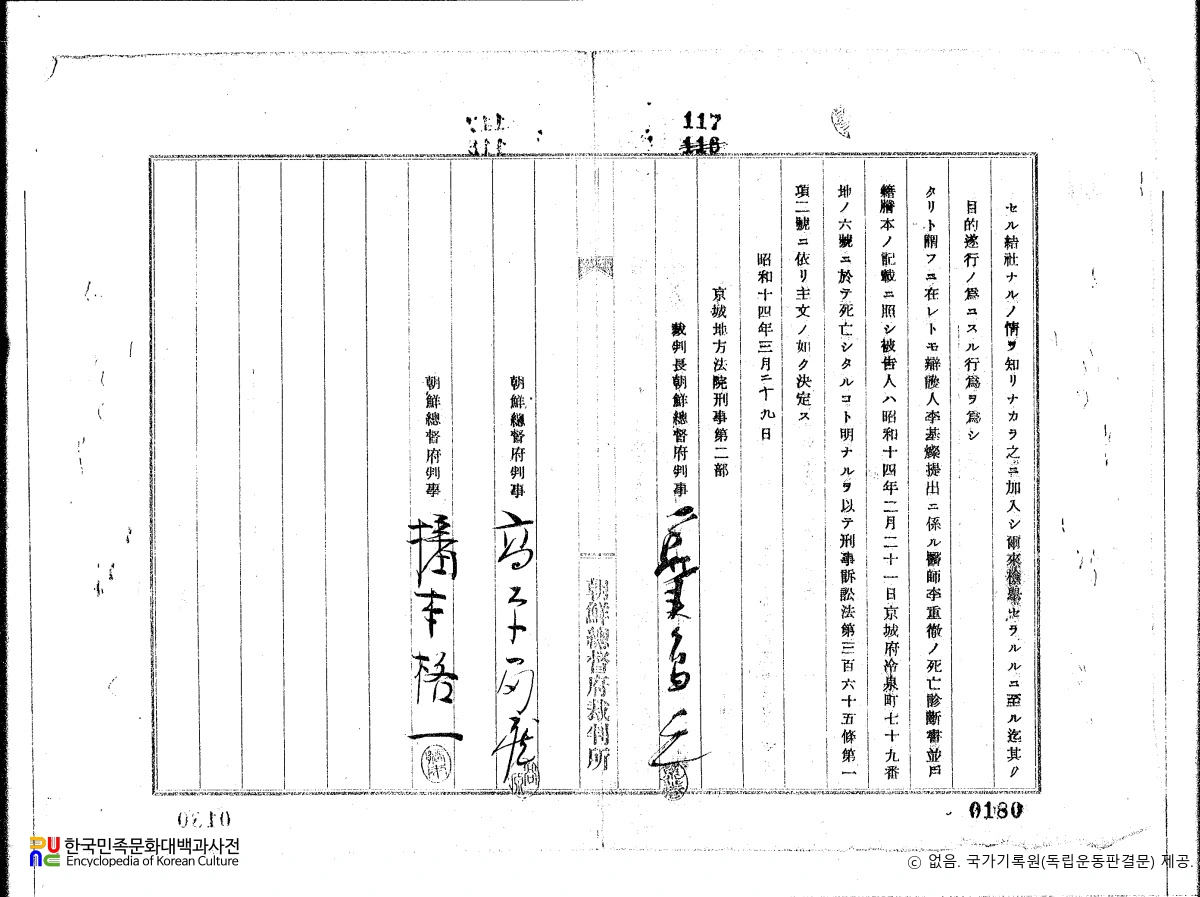 117
116
セル結社ナルノ情ヲ知リナカラ之ニ加入シ爾來檢擧セラルルニ至ル迄其ノ
目的遂行ノ爲ニスル行爲ヲ爲シ
タリト謂フニ在レトモ辯護人李基燦提出ニ係ル醫師李重徹ノ死亡診斷書並戶
籍謄本ノ記載ニ照シ被告人ハ昭和十四年二月二十一日京城府冷泉町七十九番
地ノ六號ニ於テ死亡シタルコト明ナルヲ以テ刑事訴訟法第三百六十五條第一
項二號ニ依リ主文ノ如ク決定ス
昭和十四年三月二十九日
京城地方法院刑事第二部
裁判長朝鮮總督府判事
朝鮮總督府裁判所
朝鮮總督府判事
朝鮮總督府判事 本格一
0180
한국민족문화대백과사전
Encyclopedia of Korean Culture
ⓒ 없음. 국가기록원(독립운동판결문) 제공.